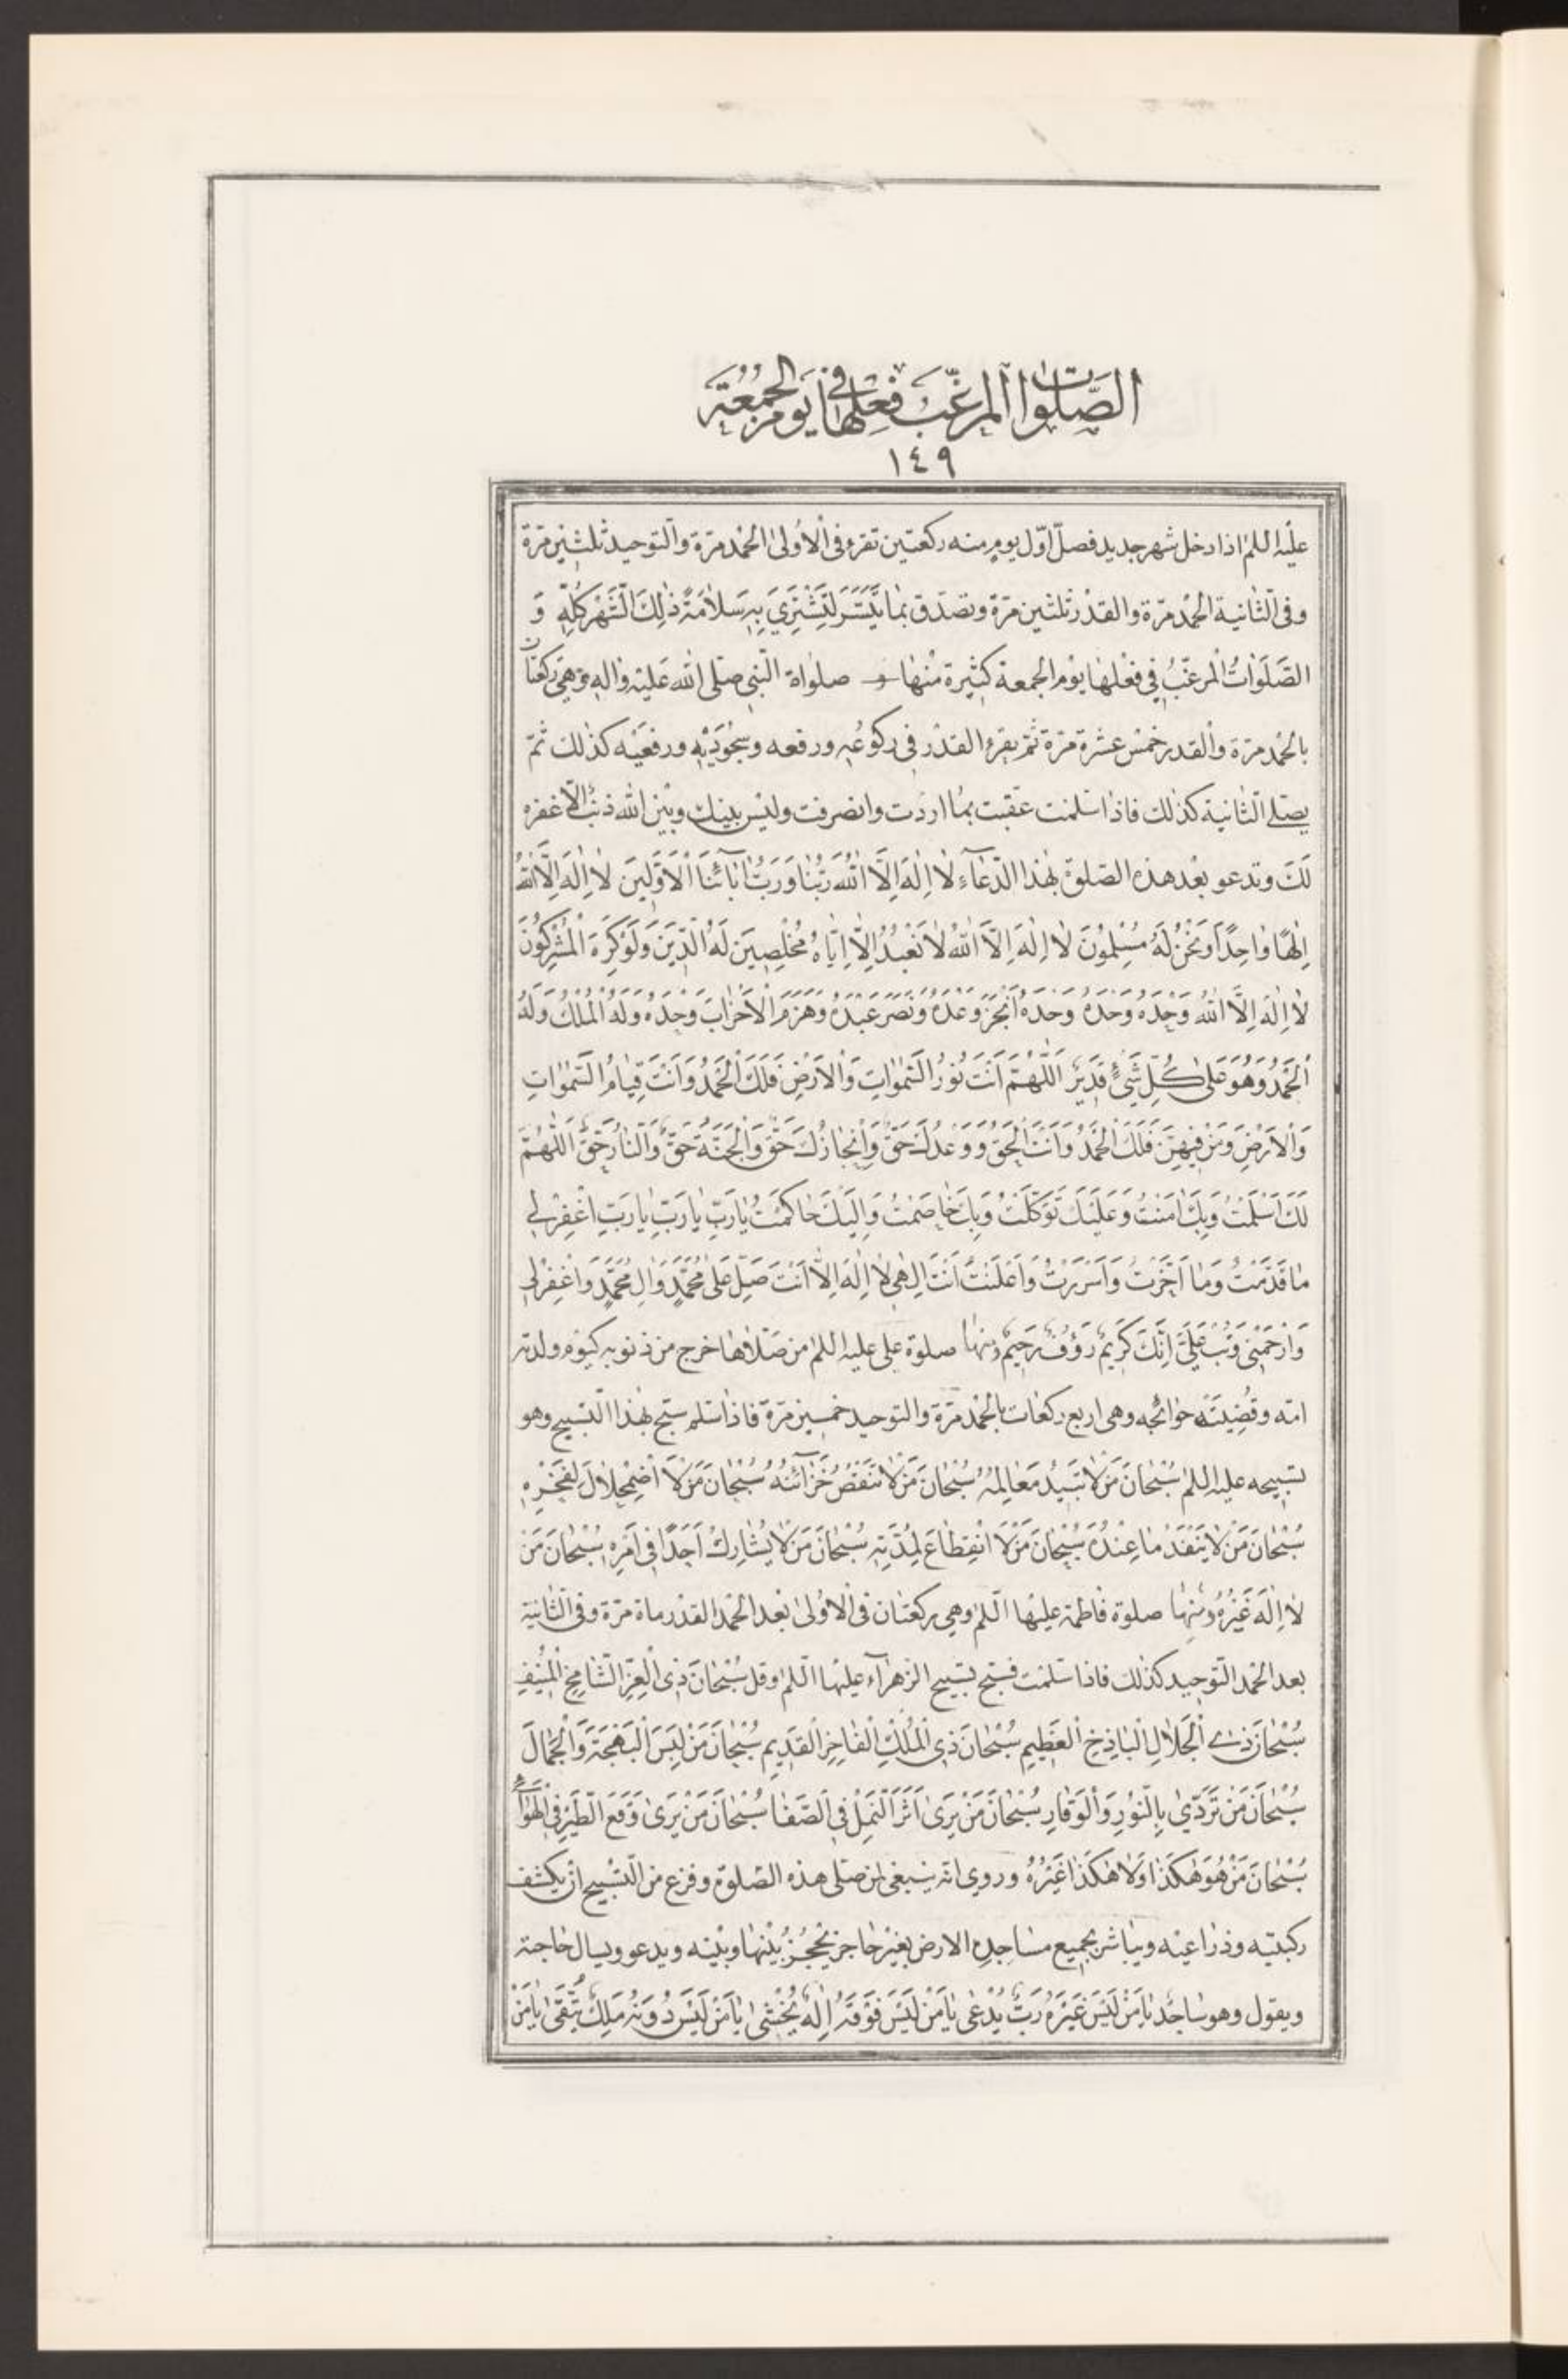 الصَّلَوات المرغّب في فعلها يوم الجُمُعَة
١٤٩
عليه السلام اذا دخل شهر جديد فصلّ اوّل يوم منه ركعتين تقرء فى الاُولىٰ الحمْد مرّة والتّوحيد ثلثين مرّة
وفى الثّانية الحمْد مرّة والقدْر ثلثين مرّة وتصدّق بمٰا يَتَيَسَّر لِتَشْتَرِيَ بِهِ سَلاٰمَةَ ذٰلِكَ الشَّهْرِ كُلِّهِ وَ
الصَّلَوٰاتُ الْمرغّبُ فِي فعْلهٰا يوْم الجمعة كثيرة منْهٰا صلوٰاة النّبي صلى الله عَليْه وٰاله وَهِيَ ركعتٰان
بالحمْد مرّة والْقدر خمْس عشْرة مرّة ثمّ يقرءُ القدْر فى ركوعُهِ ورفعه وسجُوَديْهِ ورفعَيْه كذٰلك ثمّ
يصلّے الثّانية كذٰلك فاذٰا سَلمْت عقّبت بمٰا اردْت وانْصرفت وليْس بينك وبيْن الله ذنْبٌ الّا غفره
لَكَ وتدعو بعْد هذه الصّلوٰة بهٰذا الدّعٰآءِ لاٰ اِلٰهَ اِلَّا اللهُ رَبُّنٰا وَرَبُّ اٰبٰآئِنَا الْاَوَّلِينَ لاٰ اِلٰهَ اِلَّا اللهُ
اِلٰهًا وٰاحِدًا وَنَحْنُ لَهُ مُسْلِمُونَ لاٰ اِلٰهَ اِلَّا اللهُ لاٰ نَعْبُدُ اِلّٰا اِيّٰاهُ مُخْلِصِينَ لَهُ الدِّينَ وَلَوْ كَرِهَ الْمُشْرِكُونَ
لاٰ اِلٰهَ اِلَّا اللهُ وَحْدَهُ وَحْدَهُ وَحْدَهُ اَنْجَزَ وَعْدَهُ وَنَصَرَ عَبْدَهُ وَهَزَمَ الْاَحْزٰابَ وَحْدَهُ وَلَهُ الْمُلْكُ وَلَهُ
الْحَمْدُ وَهُوَ عَلىٰ كُلِّ شَيْءٍ قَدِيرٌ اَللّٰهُمَّ اَنْتَ نُورُ السَّمٰوٰاتِ وَالْاَرْضِ فَلَكَ الْحَمْدُ وَاَنْتَ قِيٰامُ السَّمٰوٰاتِ
وَالْاَرْضِ وَمَنْ فِيهِنَّ فَلَكَ الْحَمْدُ وَاَنْتَ الْحَقُّ وَوَعْدُكَ حَقٌّ وَاِنْجٰازُكَ حَقٌّ وَالْجَنَّةُ حَقٌّ وَالنّٰارُ حَقٌّ اَللّٰهُمَّ
لَكَ اَسْلَمْتُ وَبِكَ اٰمَنْتُ وَعَلَيْكَ تَوَكَّلْتُ وَبِكَ خٰاصَمْتُ وَاِلَيْكَ حٰاكَمْتُ يٰا رَبِّ يٰا رَبِّ يٰا رَبِّ اغْفِرْ لِي
مٰا قَدَّمْتُ وَمٰا اَخَّرْتُ وَاَسْرَرْتُ وَاَعْلَنْتُ اَنْتَ اِلٰهِي لاٰ اِلٰهَ اِلّٰا اَنْتَ صَلِّ عَلىٰ مُحَمَّدٍ وَاٰلِ مُحَمَّدٍ وَاغْفِرْ لِي
وَارْحَمْنِي وَتُبْ عَلَيَّ اِنَّكَ كَرِيمٌ رَؤُفٌ رَحِيمٌ ومنها صلوة على عليه السلام من صلّاها خرج من ذنوبه كيوم ولدته
امّه وقُضِيَتْ حوٰائجه وهى اربع ركعٰات بالحمْد مرّة والتوحيد خمسين مرّة فاذٰا سلم سبّح بهٰذا التّسبيح وهو
تسبيحه عليه السلام سُبْحٰانَ مَنْ لاٰ تَبِيدُ مَعٰالِمُهُ سُبْحٰانَ مَنْ لاٰ تَنْقُصُ خَزٰآئِنُهُ سُبْحٰانَ مَنْ لاَ اضْمِحْلاٰلَ لِفَخْرِهِ
سُبْحٰانَ مَنْ لاٰ يَنْفَدُ مٰا عِنْدَهُ سُبْحٰانَ مَنْ لاَ انْقِطٰاعَ لِمُدَّتِهِ سُبْحٰانَ مَنْ لاٰ يُشٰارِكُ اَحَدًا فِي اَمْرِهِ سُبْحٰانَ مَنْ
لاٰ اِلٰهَ غَيْرُهُ ومنهٰا صلوة فٰاطمة عليهٰا السّلم وهي ركعتٰان فى الاُولىٰ بعْد الحمْد القدْر مٰاة مرّة وفى الثّانية
بعد الحمْد التّوحيد كذٰلك فاذا سلمْت فسبّح تسبيح الزهرآء عليهٰا السّلم وقل سُبْحٰانَ ذِي الْعِزِّ الشّٰامِخِ الْمُنِيفِ
سُبْحٰانَ ذِے الْجَلاٰلِ الْبٰاذِخِ الْعَظِيمِ سُبْحٰانَ ذِي الْمُلْكِ الْفٰاخِرِ الْقَدِيمِ سُبْحٰانَ مَنْ لَبِسَ الْبَهْجَةَ وَالْجَمٰالَ
سُبْحٰانَ مَنْ تَرَدّىٰ بِالنُّورِ وَالْوَقٰارِ سُبْحٰانَ مَنْ يَرىٰ اَثَرَ النَّمْلِ فِي الصَّفٰا سُبْحٰانَ مَنْ يَرىٰ وَقْعَ الطَّيْرِ فِي الْهَوٰآءِ
سُبْحٰانَ مَنْ هُوَ هٰكَذٰا وَلاٰ هٰكَذٰا غَيْرُهُ وروي انّه ينبغى لمن صلّى هذه الصّلوٰة وفرغ من التّسْبيح انْ يكشف
ركبتيه وذرٰاعيْه ويبٰاشر بجميع مسٰاجدِه الارض بغيْر حٰاجز يحْجُزُ بيْنهٰا وبيْنه ويدعو ويسال حٰاجته
ويقول وهو سٰاجدٌ يٰا مَنْ لَيْسَ غَيْرَهُ رَبٌّ يُدْعىٰ يٰا مَنْ لَيْسَ فَوْقَهُ اِلٰهٌ يُخْشىٰ يٰا مَنْ لَيْسَ دُونَهُ مَلِكٌ يُتَّقىٰ يٰا مَنْ